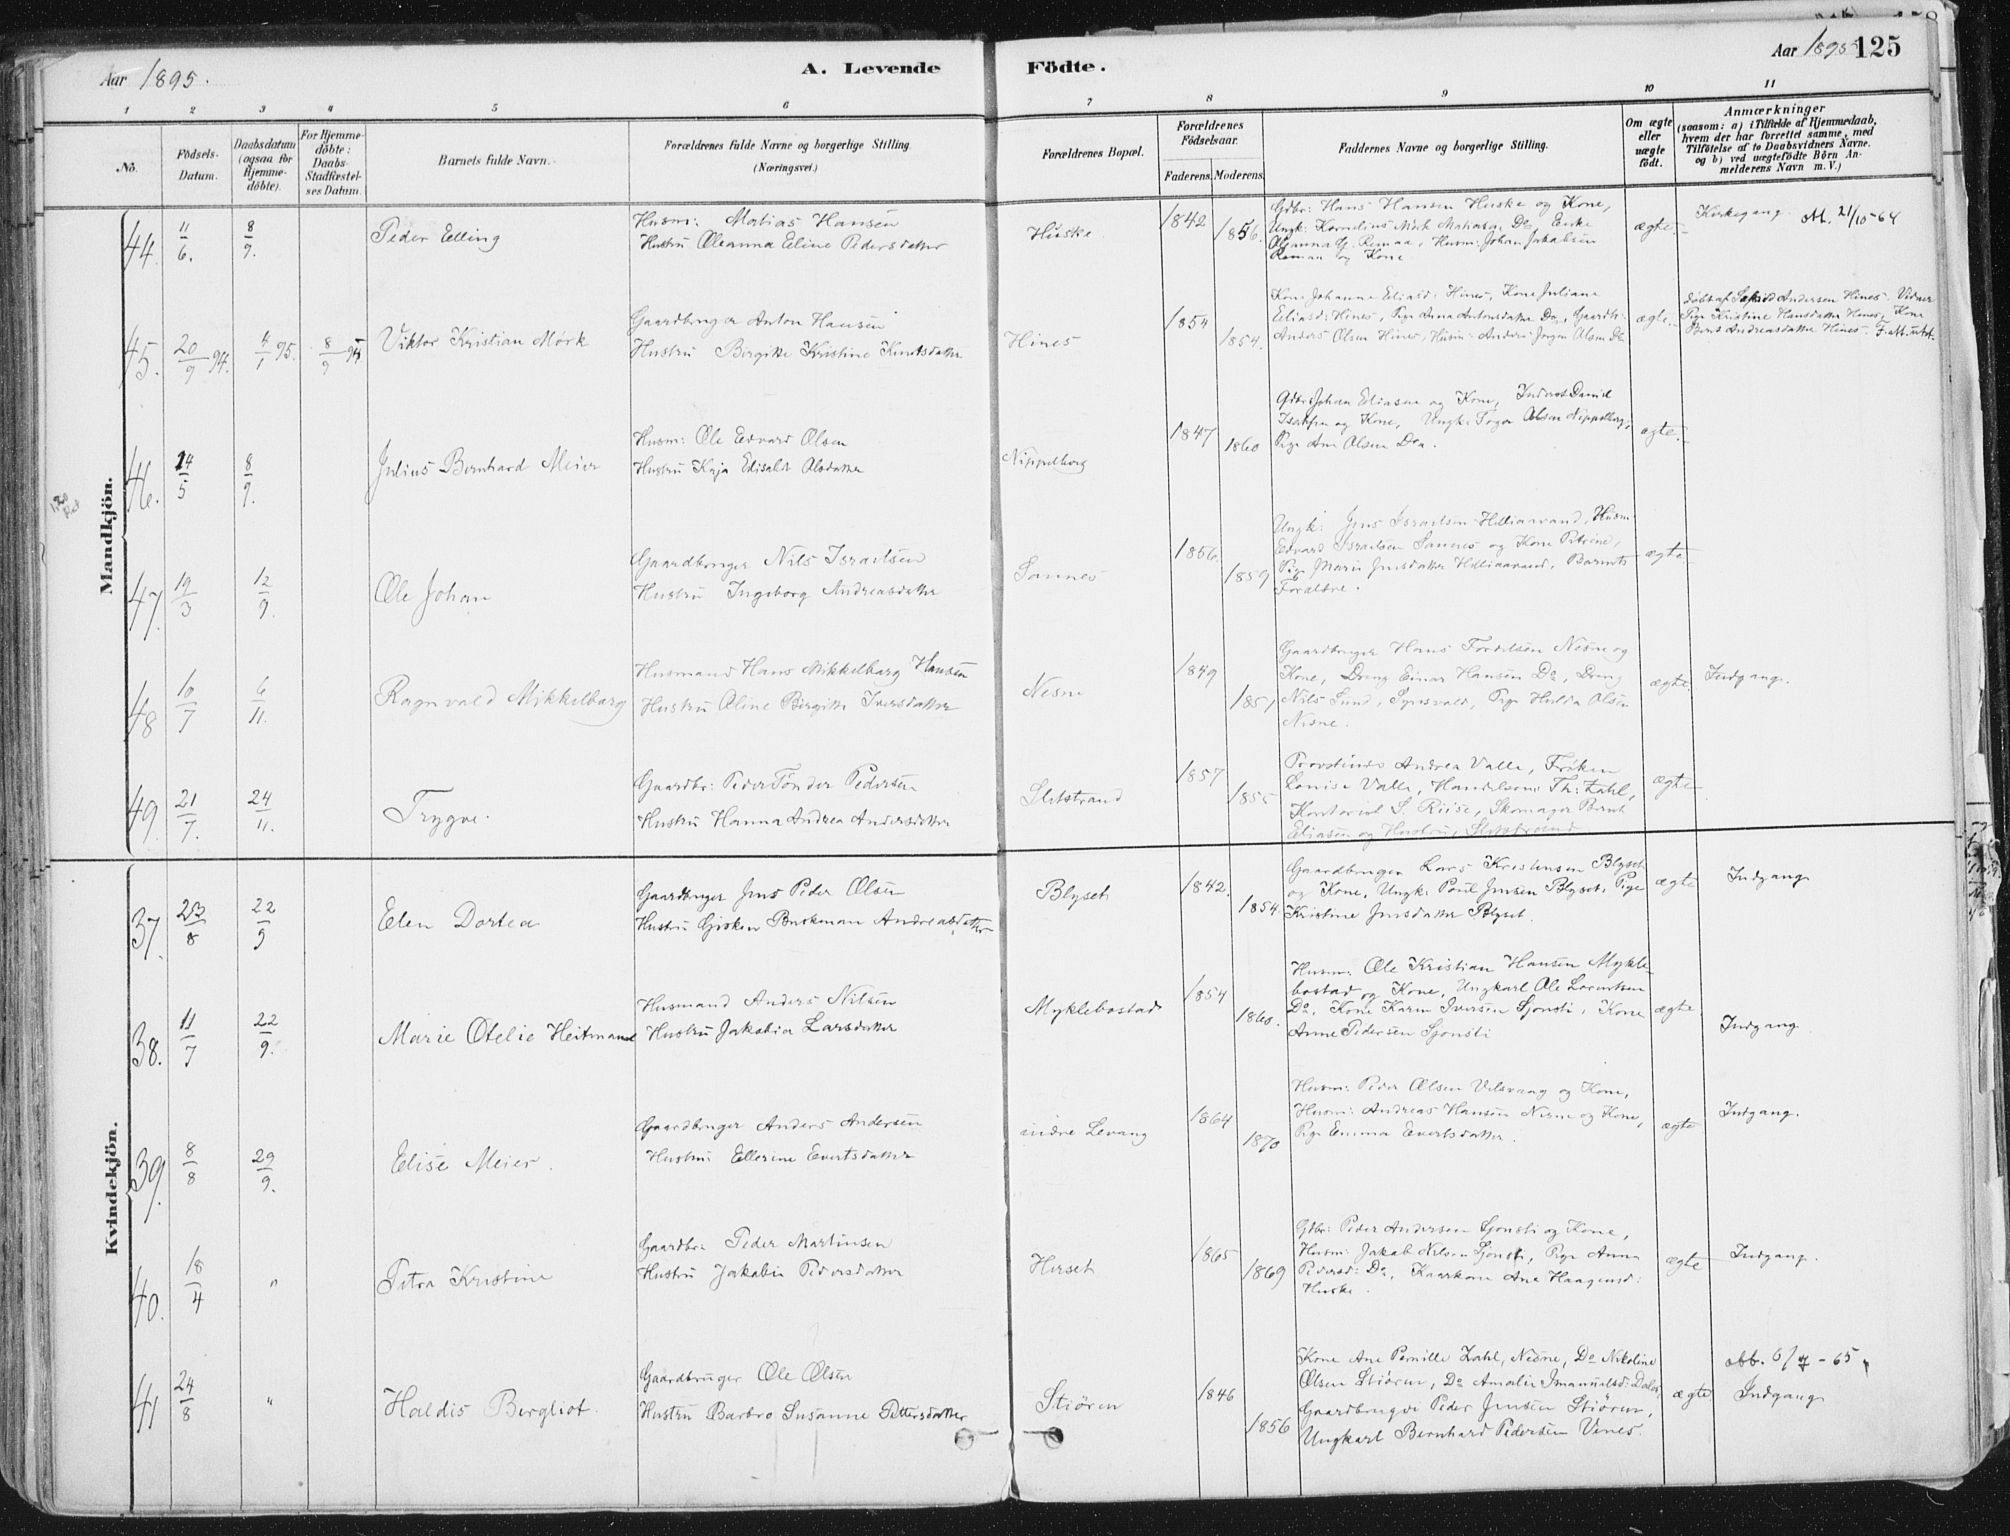 Aar 1895.
A. Levende
Födte.
Aar 1895 125
1 2 3 4 5 6 7 8 9 10 11
No.
Födsels-
Datum.
Daabsdatum
(ogsaa for
Hjemme-
döbte).
For Hjemme-
döbte:
Daabs-
Stadfæstel-
ses Datum.
Barnets fulde Navn.
Forældrenes fulde Navne og borgerlige Stilling
(Næringsvei.)
Forældrenes Bopæl.
Forældrenes
Födselsaar.
Faderens. Moderens.
Faddernes Navne og borgerlige Stilling.
Om ægte
eller
uægte
født.
Anmærkninger
(saasom: a) i Tilfælde af Hjemmedaab,
hvem der har forrettet samme, med
Tilföielse af to Daabsvidners Navne.
og b) ved uægtefödte Börn An-
melderens Navn m. V.)
Mandkjön.
44. 11/6. 8/9. Peder Elling
Husm: Matias Hansen
Hustru Oleanna Eline Pedersdatter
Huske
1842 1856.
Gdbr: Hans Hansen Huske og Kone,
Ungk: Kornelius Mörk Do, Enke
Oleanna Remaa, Husm: Johan Jakobsen
Remaa og Kone
ægte
Kirkegang. 21/10-64
45. 20/9 94. 4/1 95. 8/9 95 Viktor Kristian Mörk
Gaardbruger Anton Hansen
Hustru Bergitte Kristine Knutsdatter
Hines
1854 1854.
Kone Johanna Eliasd: Hines, Kone Juliane
Eliasd: Hines, Pige Anna Antonsdatter Do, Gaardbr:
Anders Olsen Hines, Husm: Anders Jörgen Olsen Do
ægte
döbt af Andersen Hines. Vidner
Pige Kristine Hansdatter Hines, Kone
Andreasdatter Hines.
46. 14/5 8/9. Julius Bernhard Meier
Husm: Ole Edvard Olsen
Hustru Kaja Edisalde Olsdatter
Nippelborg
1847 1860
Gdbr: Johan Eliasen og Kone, Daniel
og Kone, Ungk: Olsen Nippelborg,
Pige Ane Olsen Do.
ægte
47. 19/3 12/9. Ole Johan
Gaardbruger Nils Israelsen
Hustru Ingeborg Andreasdatter
Sannes
1856 1859
Ungk: Jens Israelsen Helliaavand, Husm
Edvard Israelsen Sannes og Kone Petrine,
Pige Marie Jensdatter Helliaavand, Barnets
Forældre.
ægte
48 10/7 6/11. Ragnvald Mikkelbarg
Husmand Hans Mikkelbarg Hansen
Hustru Oline Birgitte Iversdatter
Nesne
1849 1851
Gaardbruger Hans Nesne og
Kone, Dreng Einar Hansen Do, Dreng
Nils Lund, Pige Hulda Olsen
Nesne.
ægte
Indgang.
49. 21/7. 24/11. Trygve.
Gaardbr: Peder Tönder Pedersen
Hustru Hanna Andrea Andersdatter
Sletstrand
1857 1855
Provstinde Andrea Valle, Fröken
Louise Valle, Handelsm: Th: Zahl,
Kontorist S. Riise, Skomager Bernt
Eliasen og Hustru, Sletstrand
ægte
Kvindekjön.
37. 23/8 22/9 Elen Dortea
Gaardbruger Jens Peder Olsen
Hustru Gisken Andreasdatter
Blyset
1842. 1854
Gaardbruger Lars Kristensen Blyset
og Kone, Ungk: Poul Jensen Blyset, Pige
Kristine Jensdatter Blyset.
ægte
Indgang
38. 11/7 22/9. Marie Otelie Heitmann
Husmand Anders Nilsen
Hustru Jakobia Larsdatter
Myklebostad
1854 1860.
Husm: Ole Kristian Hansen Mykle-
bostad og Kone, Ungkarl Ole Lorentsen
Do, Kone Karen Iversen Sjonsti, Kone
Anne Pedersen Sjonsti
ægte
Indgang.
39. 8/8 29/9. Elise Meier.
Gaardbruger Anders Andersen
Hustru Ellerine Evertsdatter
indre Levang
1864 1870
Husm: Peder Olsen og Kone,
Husm: Andreas Hansen Nesne og Kone,
Pige Emma Evertsdatter.
ægte
Indgang.
40. 18/4 " Petra Kristine
Gaardbr: Peder Martinsen
Hustru Jakobie Pedersdatter
Herset
1865 1869
Gdbr: Peder Andersen Sjonsti og Kone,
Husm: Jakob Nilsen Sjonsti, Pige Anna
Pedersd: Do, Kaarkone Ane Haagensd:
Huske.
ægte
Indgang.
41 24/8 " Haldis Bergliot.
Gaardbruger Ole Olsen
Hustru Barbro Susanne Pettersdatter
Stiören
1846 1856
Kone Ane Pernille Zahl, Nesne, Do Nikoline
Olsen Stiören, Do Amalie Imanuelsd: Dalen,
Gaardbruger Peder Jensen Stiören,
Ungkarl Bernhard Pedersen Vines.
ægte
obb. 6/7-65
Indgang